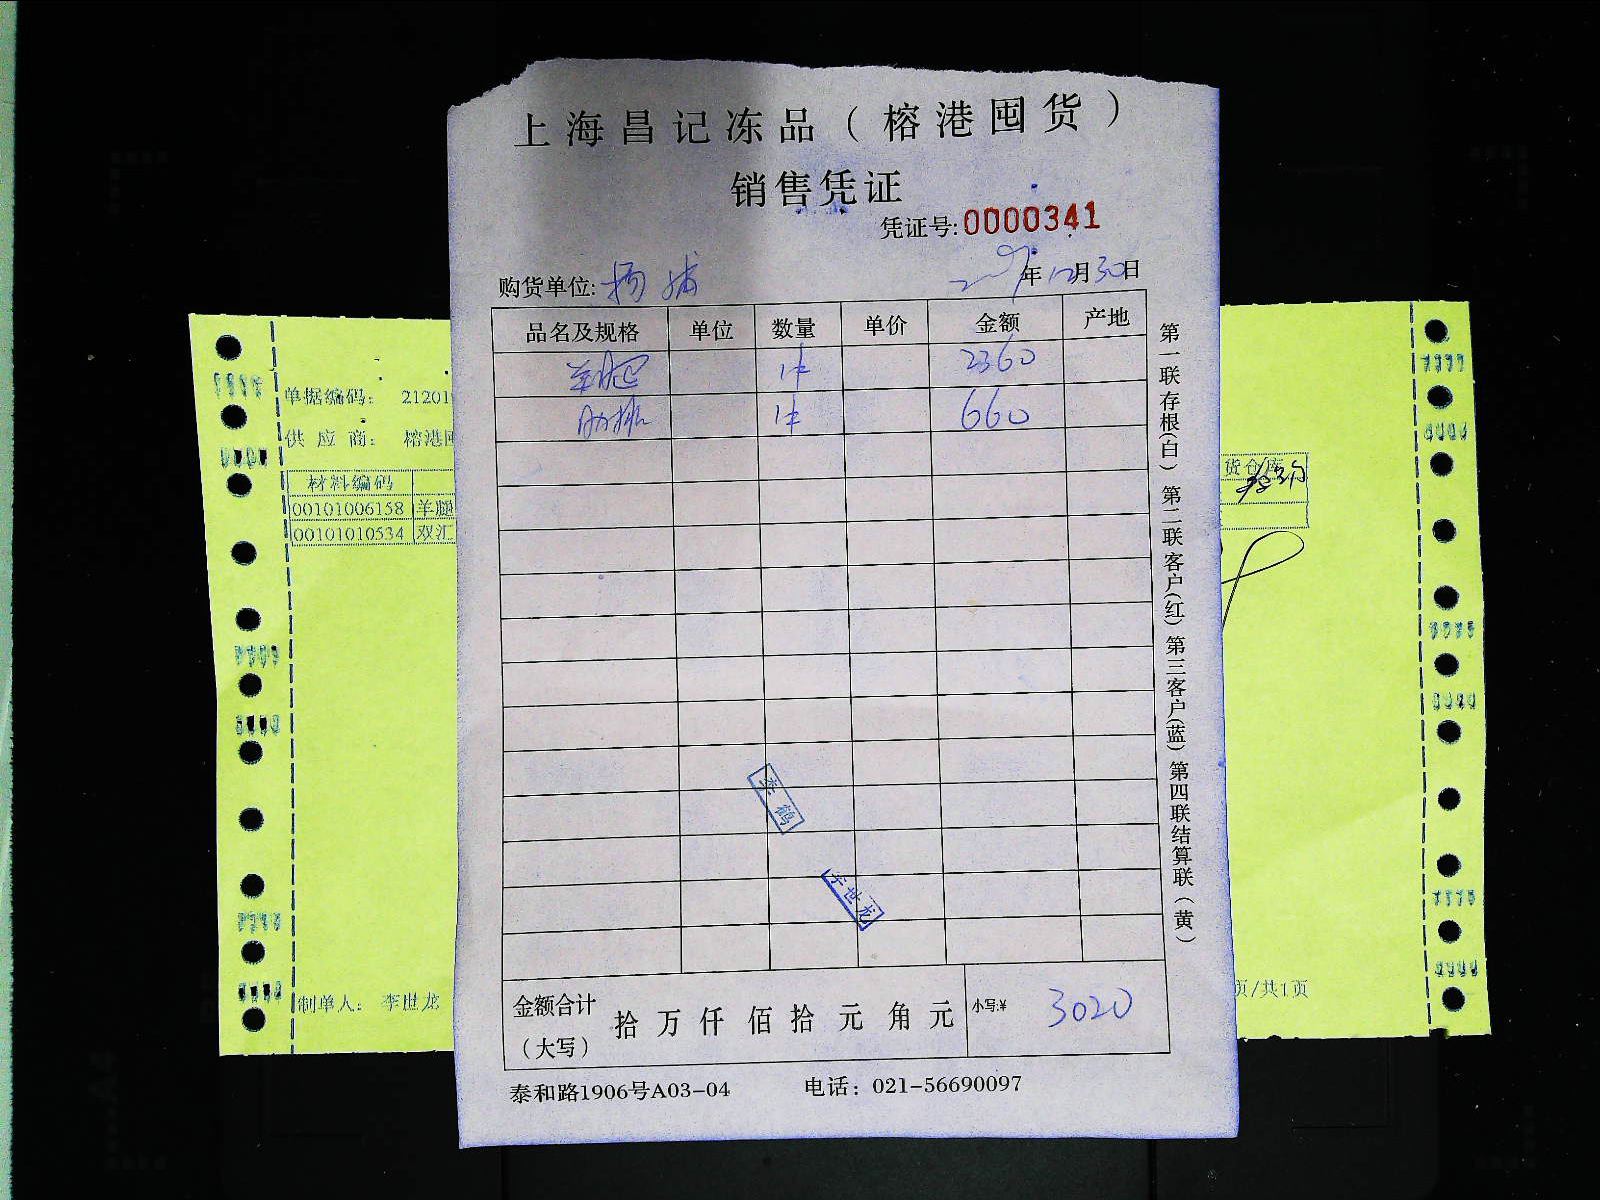 上海昌记冻品（榕港囤货）
销售凭证
凭证号:0000341
购货单位:杨浦 年12月30日
品名及规格 单位 数量 单价 金额 产地
羊腿 1件 2360
肋排 1件 660
金额合计（大写） 拾万仟佰拾元角元 小写:¥ 3020
泰和路1906号A03-04 电话：021-56690097
第一联存根(白) 第二联客户(红) 第三客户(蓝) 第四联结算联(黄)
李鹤
李世龙
单据编码： 21201
供应商： 榕港
材料编码
00101006158 羊腿
00101010534 双汇
制单人： 李世龙
货仓库
页/共1页